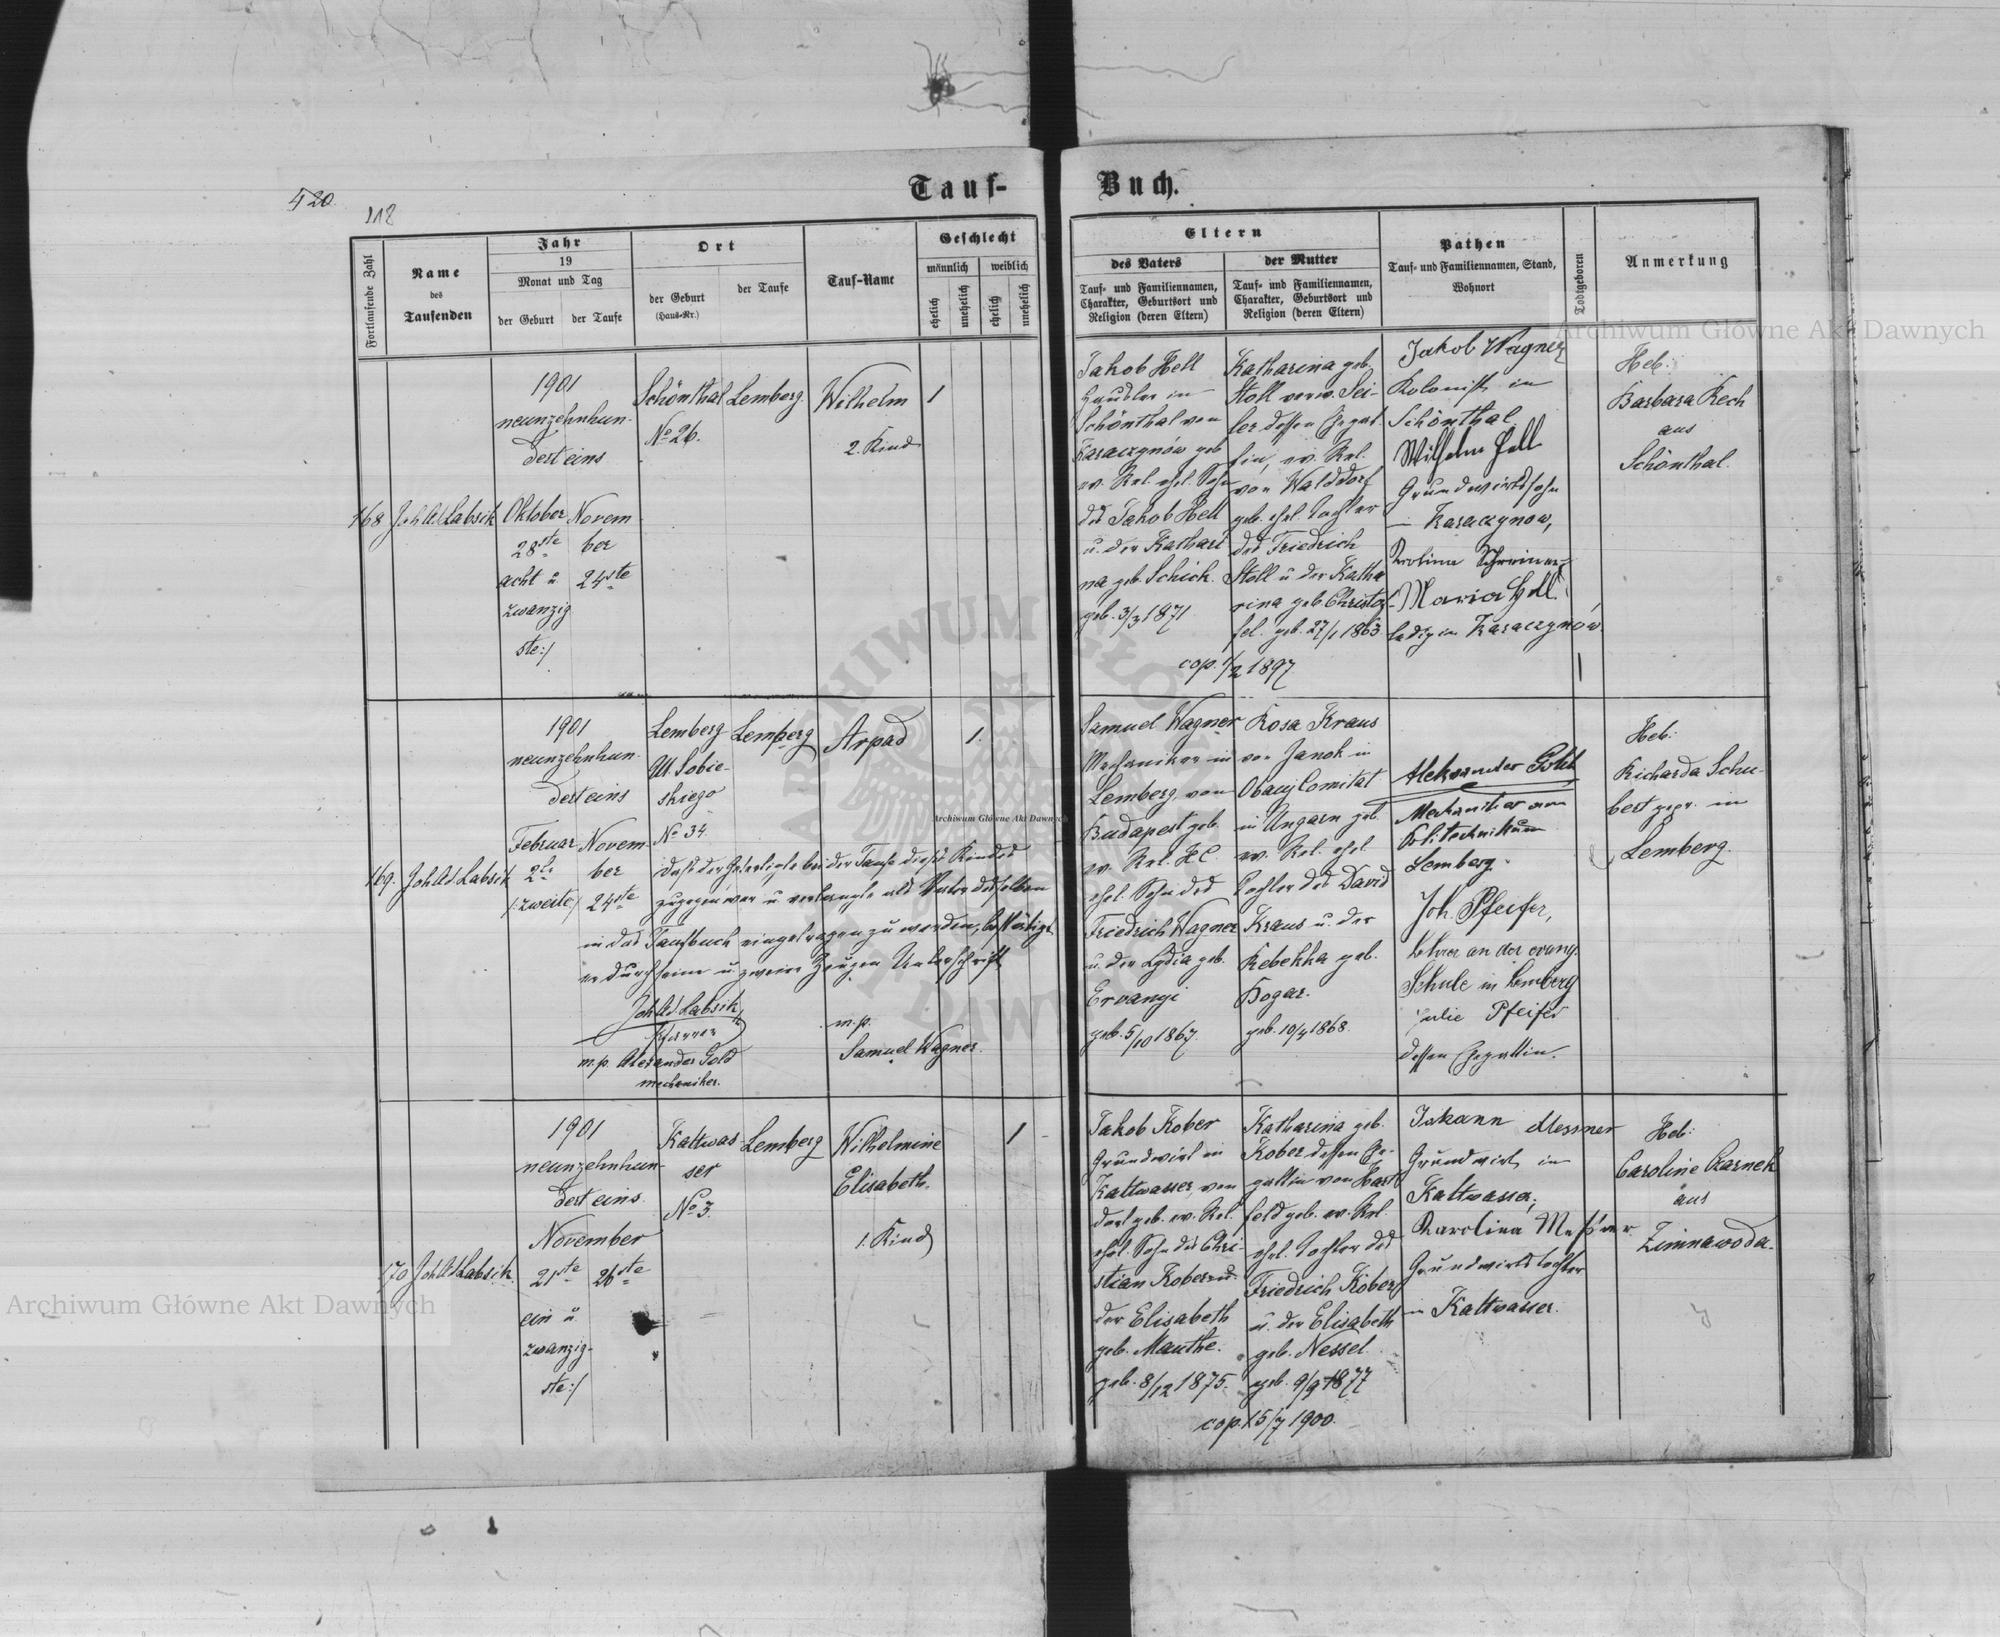 420.
118
Tauf-
Buch.
Fortlaufende Zahl
Name
des
Taufenden
Jahr
19
Monat und Tag
der Geburt
der Taufe
Ort
der Geburt
(Haus-Nr.)
der Taufe
Tauf-Name
Geschlecht
männlich
weiblich
ehelich
unehelich
ehelich
unehelich
Eltern
des Vaters
Tauf- und Familiennamen,
Charakter, Geburtsort und
Religion (deren Eltern)
der Mutter
Tauf- und Familiennamen,
Charakter, Geburtsort und
Religion (deren Eltern)
Pathen
Tauf- und Familiennamen, Stand,
Wohnort
Todtgeboren
Anmerkung
168
Joh Ad Labsik
1901
neunzehnhun-
dert eins
Oktober
28ste
acht u.
zwanzig
ste:/
Novem
ber
24ste
Schönthal
No 26.
Lemberg.
Wilhelm
2. Kind
1
Jakob Hell
in
Schönthal von
Karaczynów geb
ev. Rel. ehel. Sohn
des Jakob Hell
u. der Kathari
na geb. Schick.
geb. 3/3 1871
Katharina geb.
Stoll verw. Sei-
ler dessen Ehegat
tin, ev. Rel.
von Walddorf
geb. ehel. Tochter
des Friedrich
Stoll u der Katha
rina geb Christof
fel. geb. 27/1 1863
cop. 1/2 1897
Jakob Wagner
Kolonist in
Schönthal
Wilhelm Hell
Grundwirtssohn
Karaczynow,
Karolina Schreiner
Maria Hell
ledig in Karaczynów.
Heb:
Barbara Rech
aus
Schönthal.
169.
Joh Ad Labsik
1901
neunzehnhun-
dert eins
Februar
2te
/:zweite:/
Novem
ber
24ste
Lemberg
Ul. Sobie-
skiego
No 34.
Lemberg
Arpad
1.
dass der Gefertigte bei der Taufe dieses Kindes
zugegen war u. verlangte als Vater desselben
in das Taufbuch eingetragen zu werden, bestätigt
er durch seine u. zweier Zeugen Unterschrift
Joh Ad Labsik
Pfarrer
m.p. Alexander Gold
mechaniker.
m.p.
Samuel Wagner.
Samuel Wagner
Mechaniker in
Lemberg von
Budapest geb.
ev. Rel. H.C.
ehel. Sohn des
Friedrich Wagner
u. der Lydia geb.
Ervanyi
geb. 5/10 1867.
Rosa Kraus
von Janok in
Comitat
in Ungarn geb.
ev. Rel. ehel.
Tochter des David
Kraus u. der
Rebekka geb.
Bogar.
geb. 10/4 1868.
Aleksander Gold
Mechaniker am
Politechnikum
Lemberg.
Joh. Pfeifer,
Lehrer an der evang.
Schule in Lemberg
Julie Pfeifer
dessen Ehegattin.
Heb:
Richarda Schu-
bert gepr. in
Lemberg.
170
Joh Ad Labsik.
1901
neunzehnhun-
dert eins.
November
21ste
ein u.
zwanzig-
ste:/
26ste
Kaltwas
ser
No 3.
Lemberg
Wilhelmine
Elisabeth.
1. Kind
1
Jakob Kober
Grundwirt in
Kaltwasser, von
dort geb. ev. Rel.
ehel. Sohn des Chri-
stian Kober u.
der Elisabeth
geb. Manthe.
geb. 8/12 1875.
Katharina geb.
Kober dessen Ge-
gattin von Hart
feld geb. ev. Rel.
ehel. Tochter des
Friedrich Kober
u. der Elisabeth
geb. Nessel
geb. 9/9 1877
cop. 15/7 1900.
Johann Messner
Grundwirt in
Kaltwasser,
Karolina Meßner
Grundwirtstochter
in Kaltwasser.
Heb:
Caroline Czarnek
aus
Zimnawoda.
Archiwum Główne Akt Dawnych
Archiwum Główne Akt Dawnych
Archiwum Główne Akt Dawnych